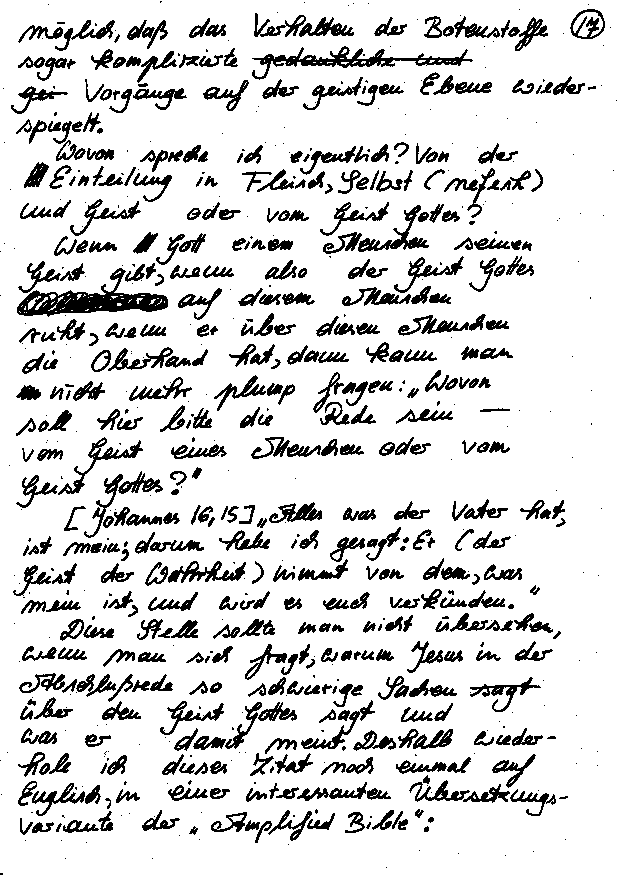 möglich, daß das Verhalten der Botenstoffe 17
sogar komplizierte gedankliche und
gei Vorgänge auf der geistigen Ebene wieder-
spiegelt.
Wovon spreche ich eigentlich? Von der
Einteilung in Fleisch, Selbst (nefesh)
und Geist oder vom Geist Gottes?
Wenn Gott einem Menschen seinen
Geist gibt, wenn also der Geist Gottes
auf diesem Menschen
ruht, wenn er über diesen Menschen
die Oberhand hat, dann kann man
nicht mehr plump fragen: „Wovon
soll hier bitte die Rede sein —
vom Geist eines Menschen oder vom
Geist Gottes?"
[Johannes 16,15] „Alles was der Vater hat,
ist mein; darum habe ich gesagt: Er (der
Geist der Wahrheit) nimmt von dem, was
mein ist, und wird es euch verkünden."
Diese Stelle sollte man nicht übersehen,
wenn man sich fragt, warum Jesus in der
Abschlußrede so schwierige Sachen sagt
über den Geist Gottes sagt und
was er damit meint. Deshalb wieder-
hole ich dieses Zitat noch einmal auf
Englisch, in einer interessanten Übersetzungs-
variante der „Amplified Bible":